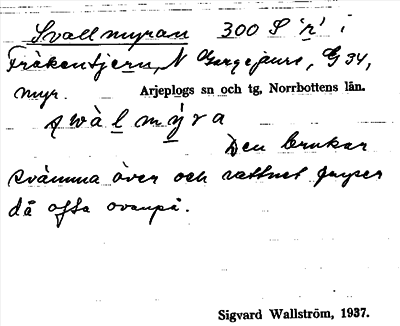 Svallmyran 300 S 'n' i
Fräkentjern, N Gargejaure, G 34,
myr. Arjeplogs sn och tg, Norrbottens län.
swàl mýra
Den brukar
svämma över och vattnet fryser
då ofta ovanpå.
Sigvard Wallström, 1937.